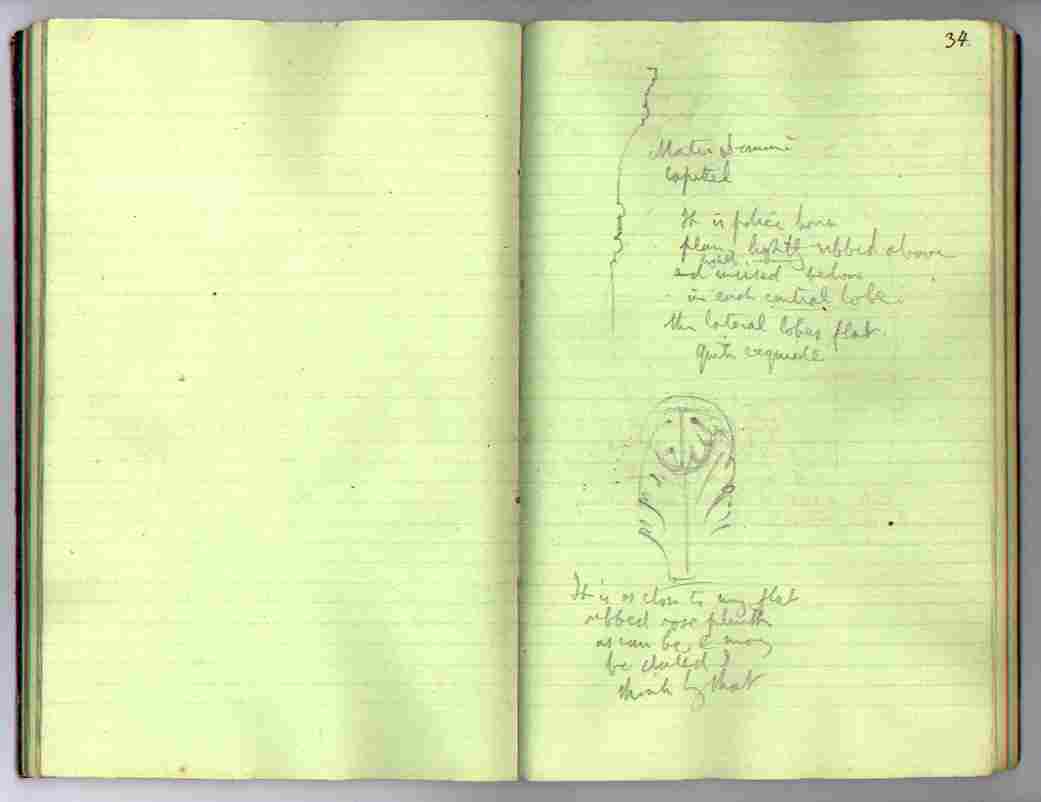 34
Mater Domini
Capital
It is police
plain lightly ribbed above
light
and incised below
in each central lobe.
the lateral lobes flat.
quite exquisite
It is as close to my flat
ribbed rose plinth
as can be & may
be dated I
think by that